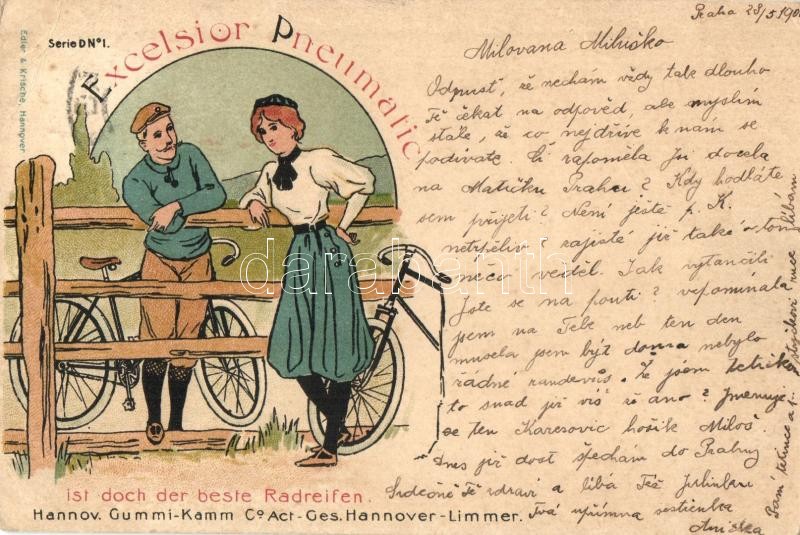 Serie D Nº 1.
Excelsior Pneumatic
Edler & Krische, Hannover
Praha 28/5 190
Milovaná Miluško
Odpusť, že nechám vždy tak dlouho
Tě čekat na odpověď, ale myslím
stále, že co nejdříve k nám se
podíváte. Či zapoměla jsi docela
na Matičku Prahu? Kdy hodláte
sem přijeti? Není ještě p. K.
netrpěliv zajisté již také o tom
něco věděl. Jak vytančili
jste se na pouti? vzpomínala
jsem na Tebe neb ten den
musela jsem být doma nebylo
řádné randevůs. Že jsem tetička
to snad již víš že ano? Jmenuje
se ten Karesovic hošík Miloš.
Dnes již dost spěchám do Prahy
Srdečně Tě zdraví a líbá Tě Julinku
Tvá upřímná sestřenka
Aniska
Paní tetince a strýčkovi ruce líbám
darabanth
ist doch der beste Radreifen.
Hannov. Gummi-Kamm Cº Act-Ges. Hannover-Limmer.